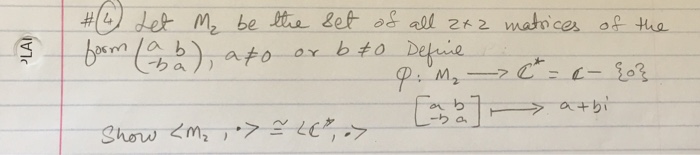 #④ Let M₂ be the set of all 2×2 matrices of the
form (a b
-b a), a≠0 or b≠0 Define
φ: M₂ → ℂ* = ℂ - {0}
[a b
-b a] ↦ a+bi
Show <M₂, ·> ≅ <ℂ*, ·>
PLAI